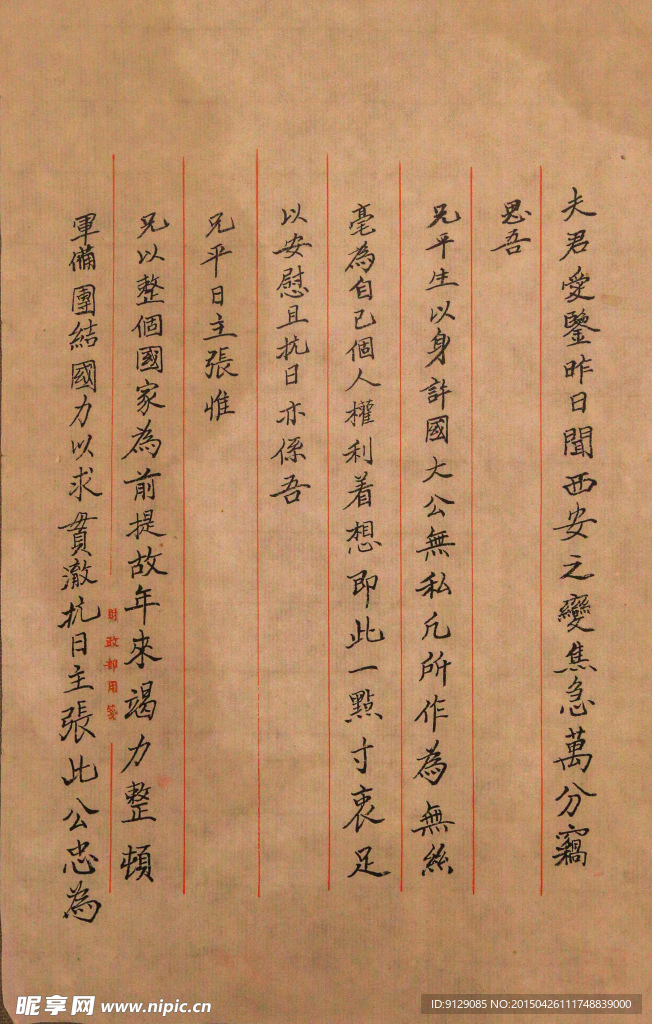 夫君愛鑒昨日聞西安之變焦急萬分竊
思吾
兄平生以身許國大公無私凡所作為無絲
毫為自己個人權利着想即此一點寸衷足
以安慰且抗日亦係吾
兄平日主張惟
兄以整個國家為前提故年來竭力整頓
軍備團結國力以求貫澈抗日主張此公忠為
財政部用箋
昵享网 www.nipic.cn
ID:9129085 NO:20150426111748839000